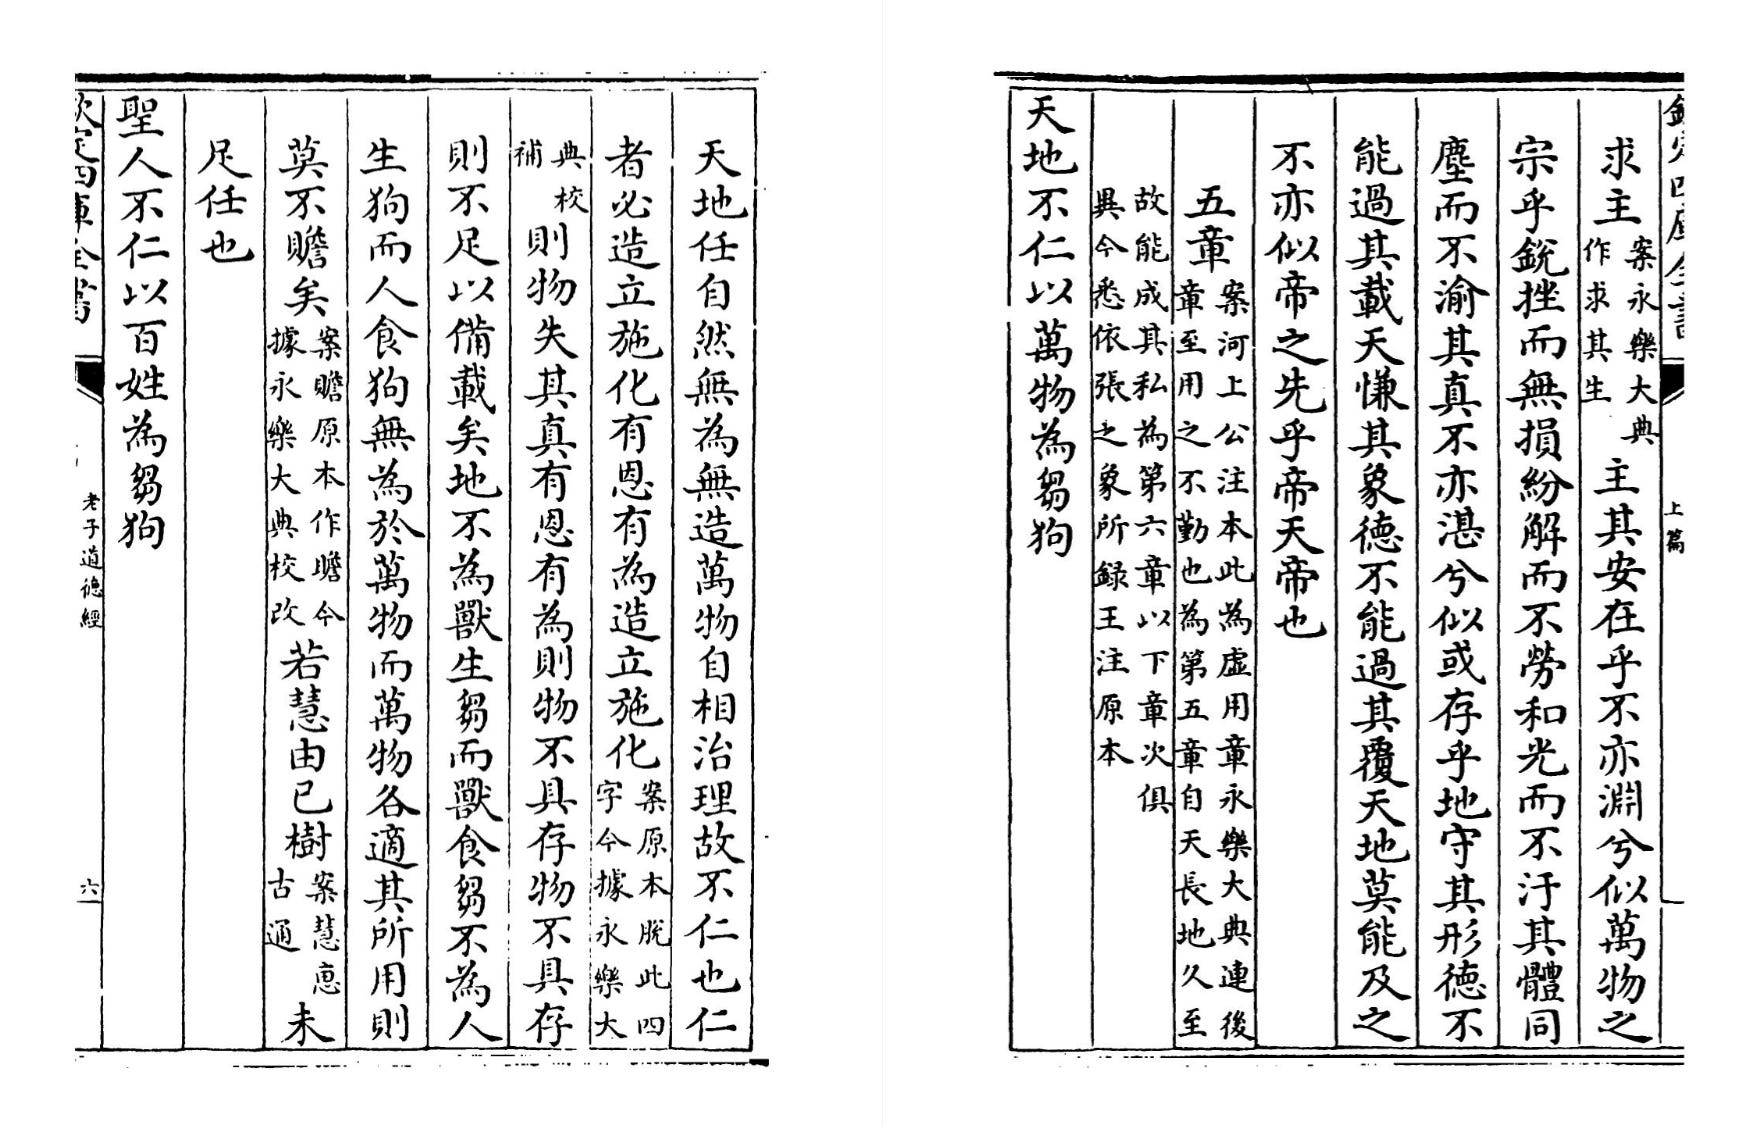 欽定四庫全書
上篇
求主案永樂大典作求其生主其安在乎不亦淵兮似萬物之
宗乎銳挫而無損紛解而不勞和光而不汙其體同
塵而不渝其真不亦湛兮似或存乎地守其形德不
能過其載天慊其象德不能過其覆天地莫能及之
不亦似帝之先乎帝天帝也
五章案河上公注本此為虛用章永樂大典連後章至用之不勤也為第五章自天長地久至
故能成其私為第六章以下章次俱異今悉依張之象所録王注原本
天地不仁以萬物為芻狗
天地任自然無為無造萬物自相治理故不仁也仁
者必造立施化有恩有為造立施化案原本脫此四字今據永樂大
典校補則物失其真有恩有為則物不具存物不具存
則不足以備載矣地不為獸生芻而獸食芻不為人
生狗而人食狗無為於萬物而萬物各適其所用則
莫不贍矣案贍原本作瞻今據永樂大典校改若慧由已樹案慧惠古通未
足任也
聖人不仁以百姓為芻狗
欽定四庫全書
老子道德經
六